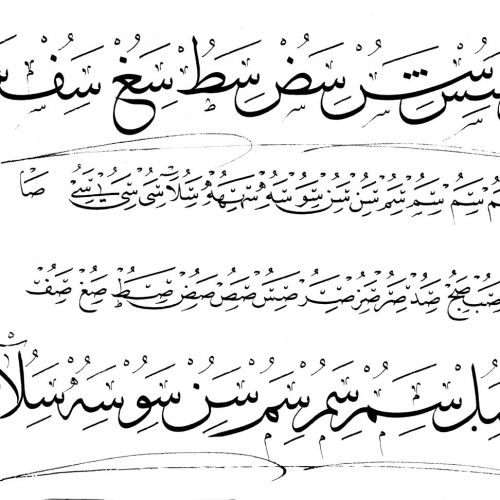 سس سر سض سط سغ سف
سم سم سم سم سن سن سو سه سهه سلا سى سى سے صا
صب صج صد صر صز صر صس صص صض صط صغ صف
سل سم سم سم سن سو سه سلا